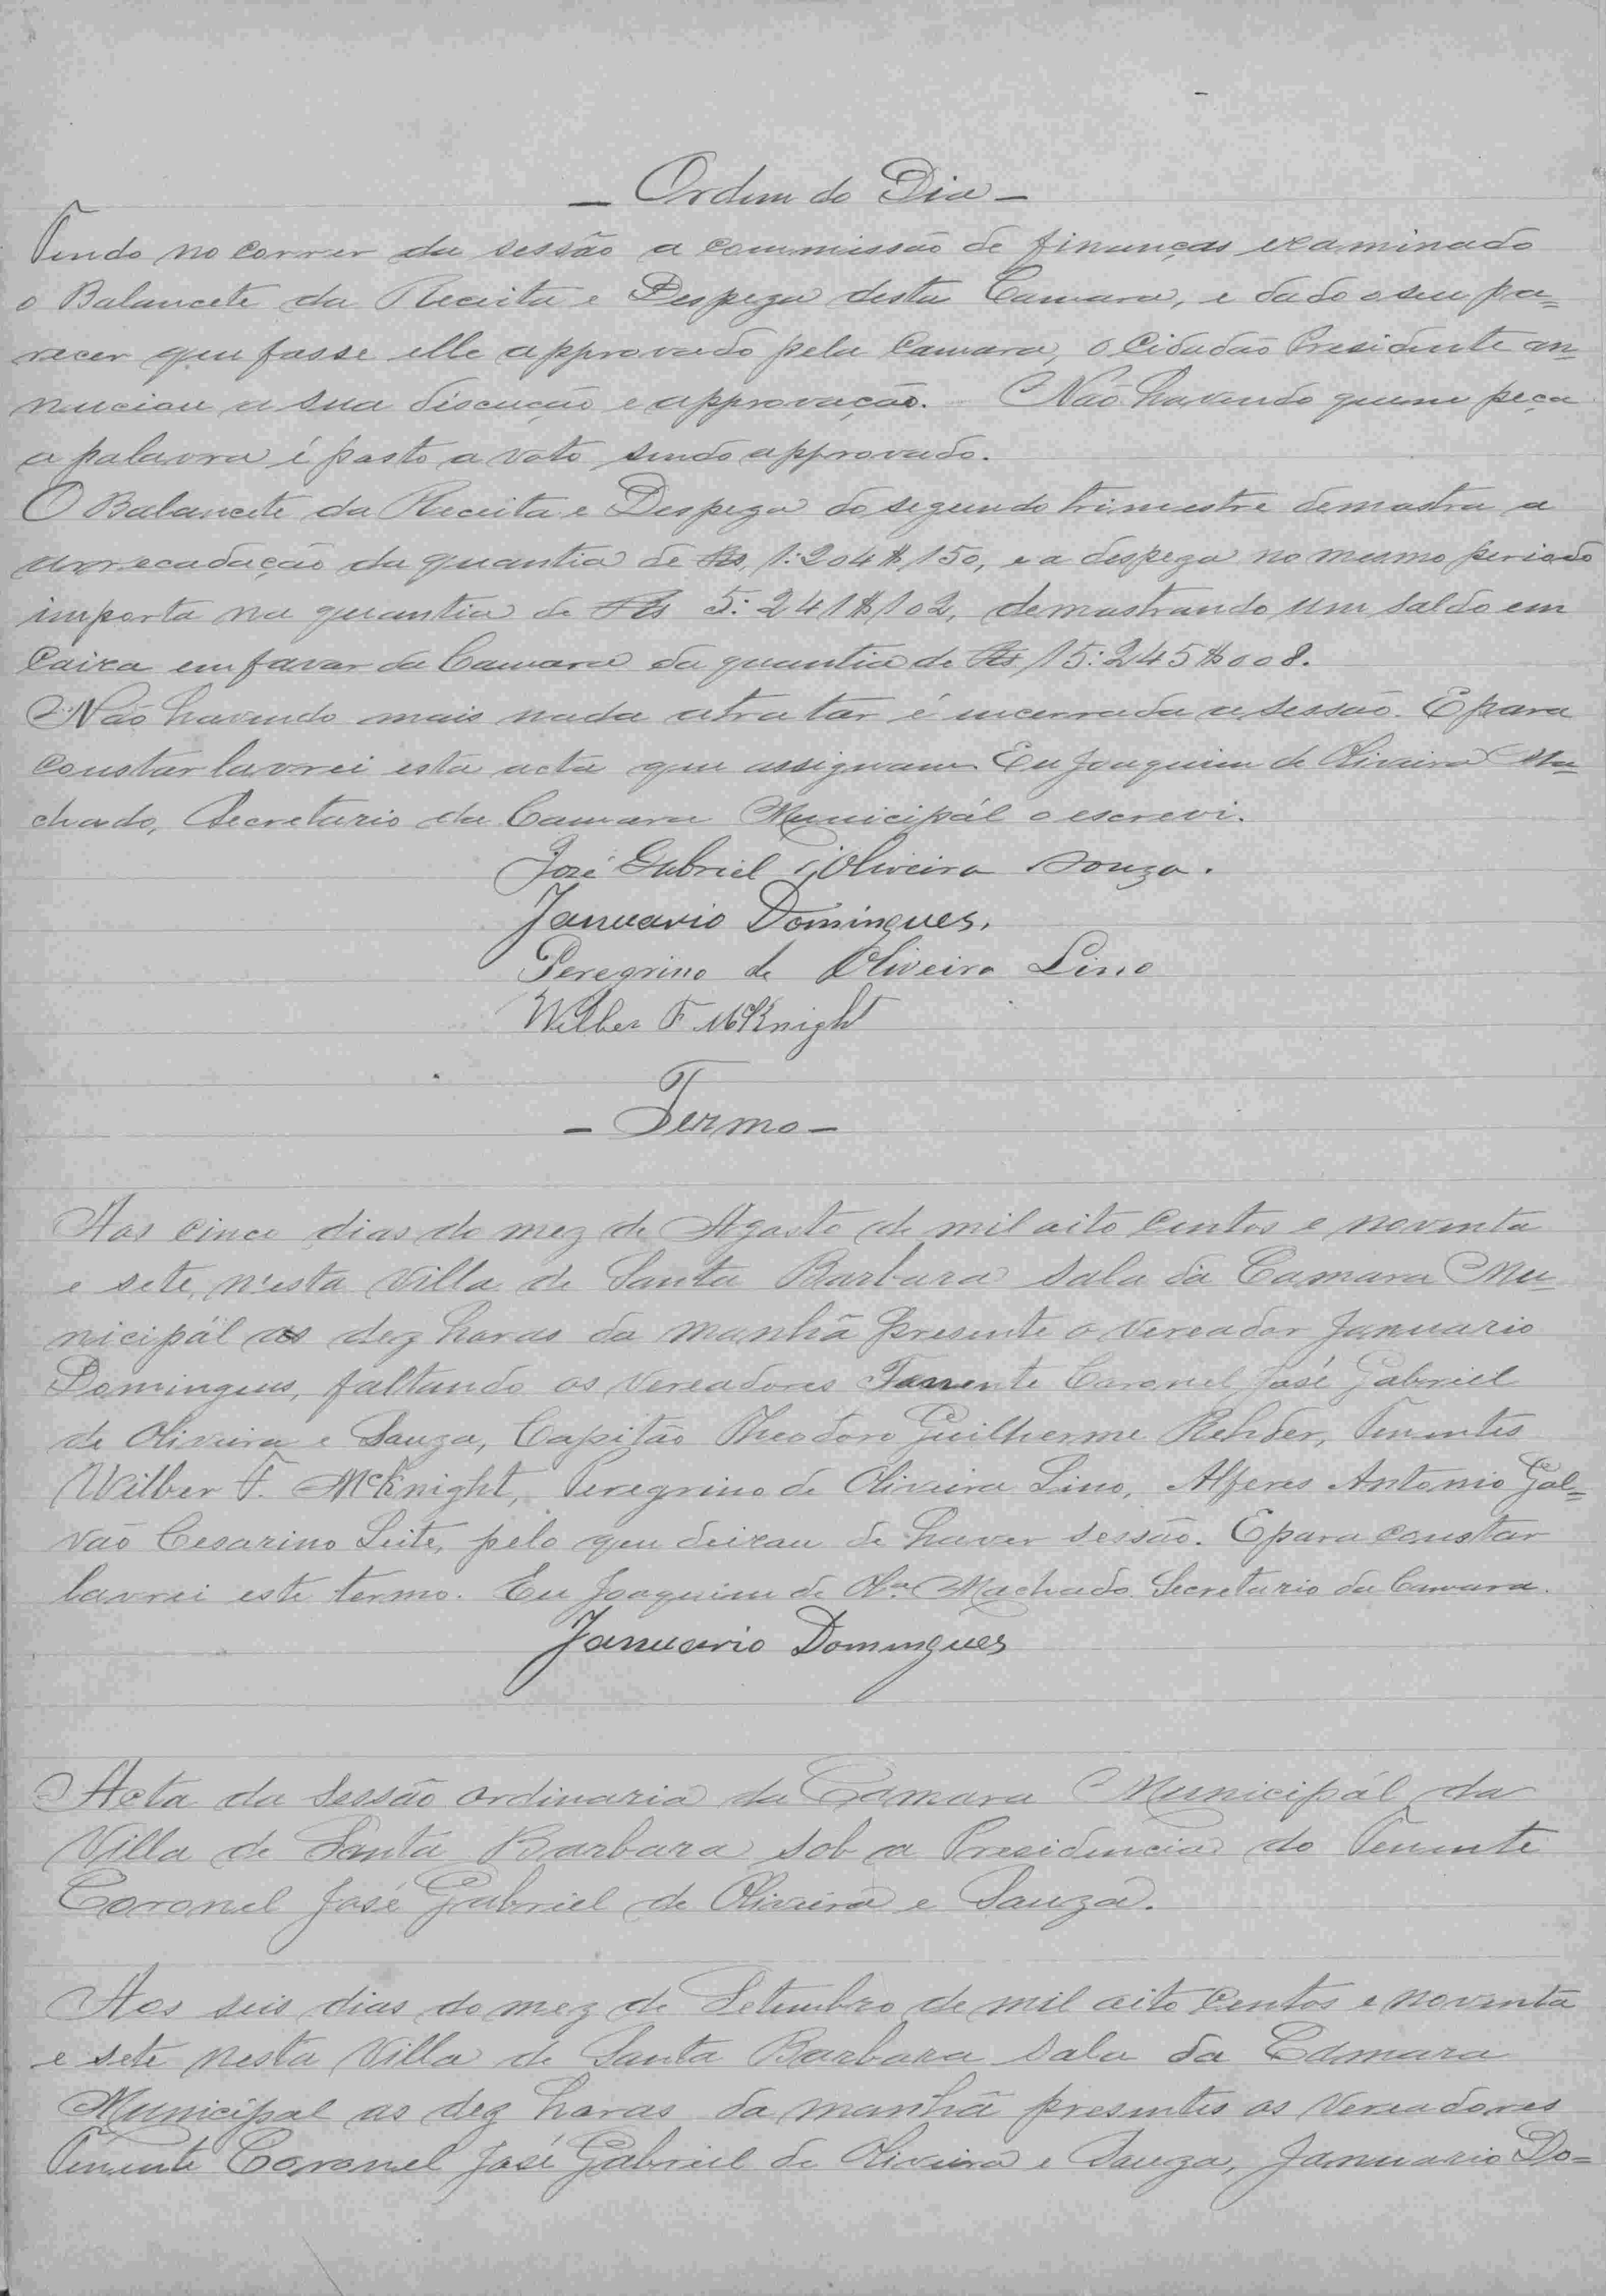 — Ordem do Dia —
Tendo no correr da sessão a commissão de finanças examinado
o Balancete da Receita e Despeza desta Camara, e dado o seu pa=
recer que fosse elle approvado pela Camara, o Cidadão Presidente an=
nunciou a sua discução e approvação. Não havendo quem peça
a palavra é posto a voto sendo approvado.
O Balancete da Receita e Despeza do segundo trimestre demostra a
arrecadação da quantia de Rs. 1:204$150, e a despeza no mesmo periodo
importa na quantia de Rs 5:241$102, demostrando um saldo em
Caixa em favor da Camara da quantia de Rs 15:245$008.
Não havendo mais nada atratar é encerrada a sessão. E para
constar lavrei esta acta que assignam. Eu Joaquim de Oliveira Ma=
chado, Secretario da Camara Municipál o escrevi.
José Gabriel d'Oliveira Souza.
Januario Domingues.
Peregrino de Oliveira Lino
Wilber F. McKnight
— Termo —
Aos cinco dias do mez de Agosto de mil oito centos e noventa
e sete, n'esta Villa de Santa Barbara sala da Camara Mu=
nicipál as dez horas da manhã presente o vereador Januario
Domingues, faltando os Vereadores Tenente Coronel José Gabriel
de Oliveira e Souza, Capitão Theodoro Guilherme Rehder, Tenentes
Wilber F. McKnight, Peregrino de Oliveira Lino, Alferes Antonio Gal=
vão Cesarino Leite, pelo que deixou de haver sessão. E para constar
lavrei este termo. Eu Joaquim de Olra Machado Secretario da Camara.
Januario Domingues
Acta da Sessão ordinaria da Camara Municipál da
Villa de Santa Barbara sob a Presidencia do Tenente
Coronel José Gabriel de Oliveira e Souza.
Aos seis dias do mez de Setembro de mil oito centos e noventa
e sete nesta Villa de Santa Barbara sala da Camara
Municipal as dez horas da manhã presentes os Vereadores
Tenente Coronel José Gabriel de Oliveira e Souza, Januario Do=